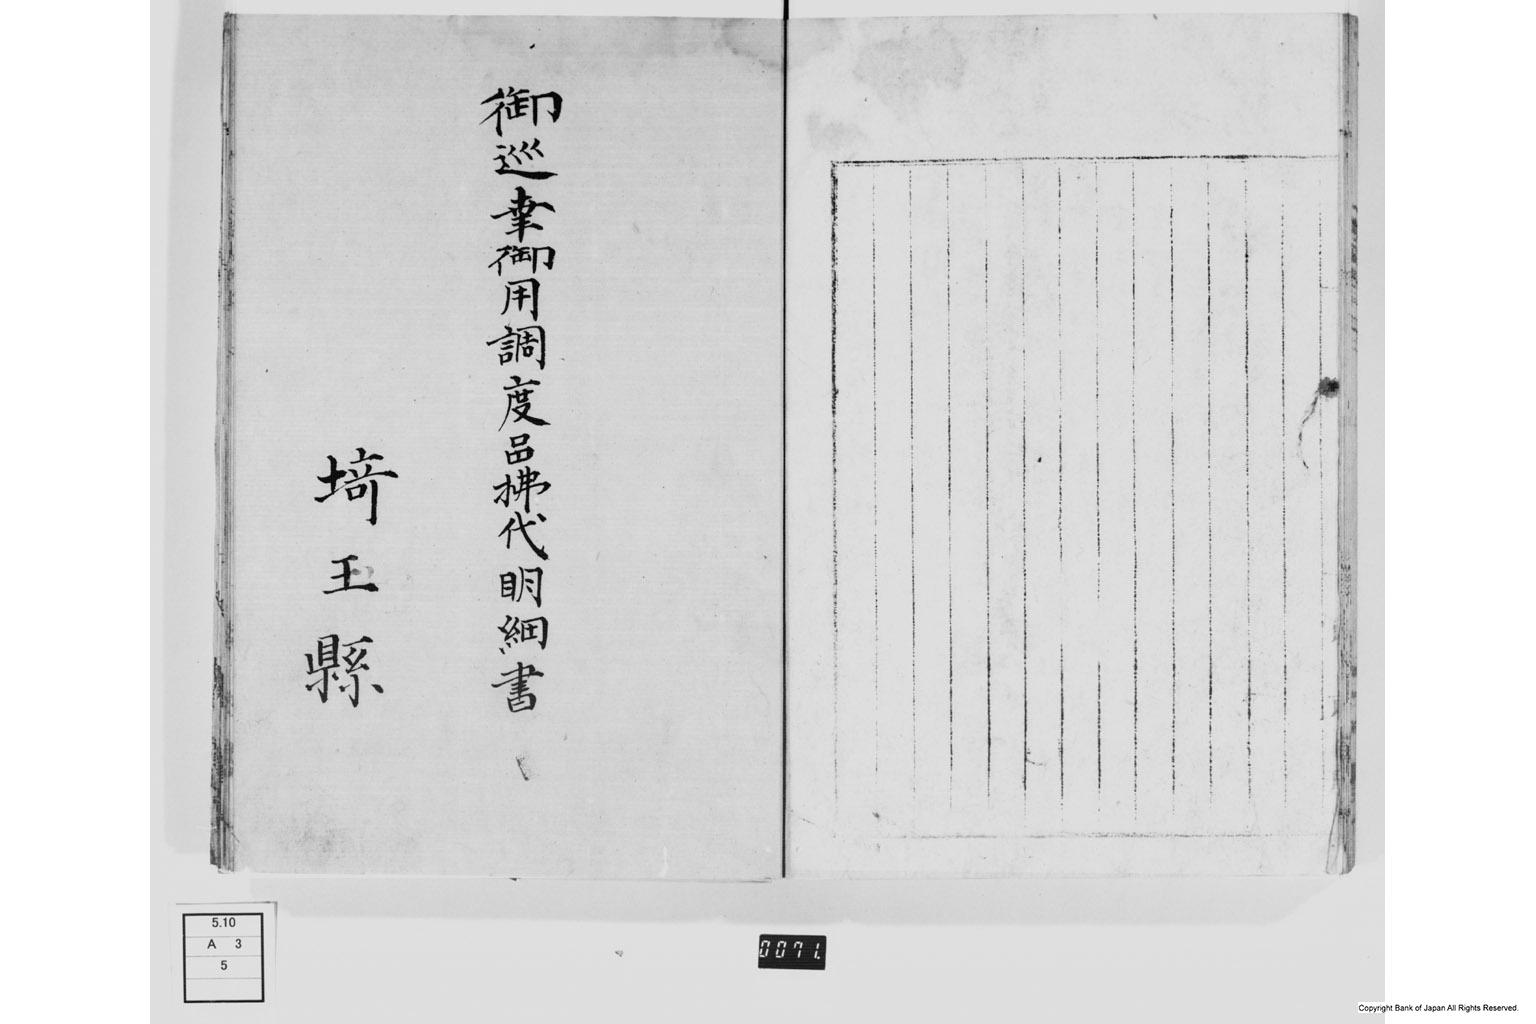 御巡幸御用調度品拂代明細書
埼玉縣
5.10
A 3
5
0071.
Copyright Bank of Japan All Rights Reserved.